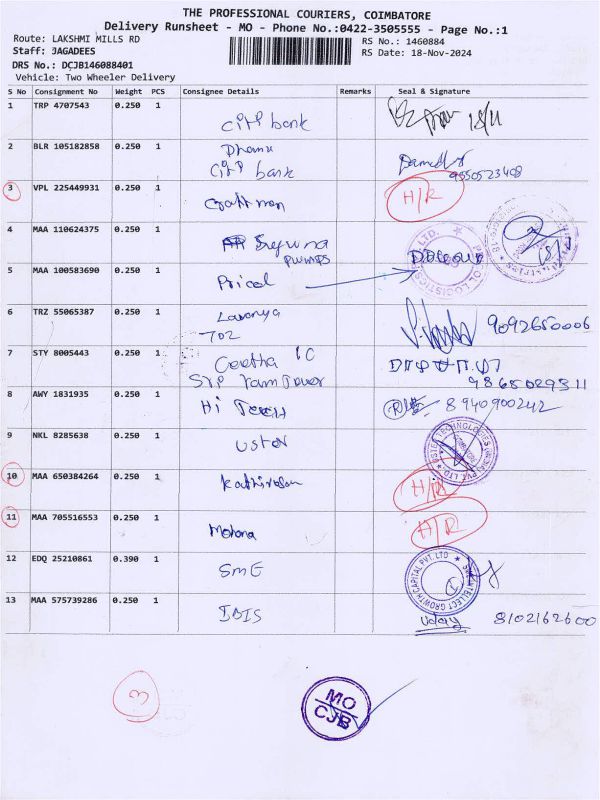 THE PROFESSIONAL COURIERS, COIMBATORE
Delivery Runsheet - MO - Phone No.:0422-3505555 - Page No.:1
Route: LAKSHMI MILLS RD
RS No.: 1460884
Staff: JAGADEES
RS Date: 18-Nov-2024
DRS No.: DCJB146088401
Vehicle: Two Wheeler Delivery
S No Consignment No Weight PCS Consignee Details Remarks Seal & Signature
1 TRP 4707543 0.250 1 citi bank 18/11
2 BLR 105182858 0.250 1 Dhanu
citi bank 9550523408
3 VPL 225449931 0.250 1 Craftman H/R
4 MAA 110624375 0.250 1 Suguna
pumps
5 MAA 100583690 0.250 1 Pricol
6 TRZ 55065387 0.250 1 Lavanya 9092650006
702
7 STY 8005443 0.250 1 Geetha
9865029311
8 AWY 1831935 0.250 1 Hi Tech 8940900242
9 NKL 8285638 0.250 1 Uster
10 MAA 650384264 0.250 1 Kathiresan H/R
11 MAA 705516553 0.250 1 Mohana H/R
12 EDQ 25210861 0.390 1 SME
13 MAA 575739286 0.250 1 IBIS Uday 8102162600
3
MO
CJB